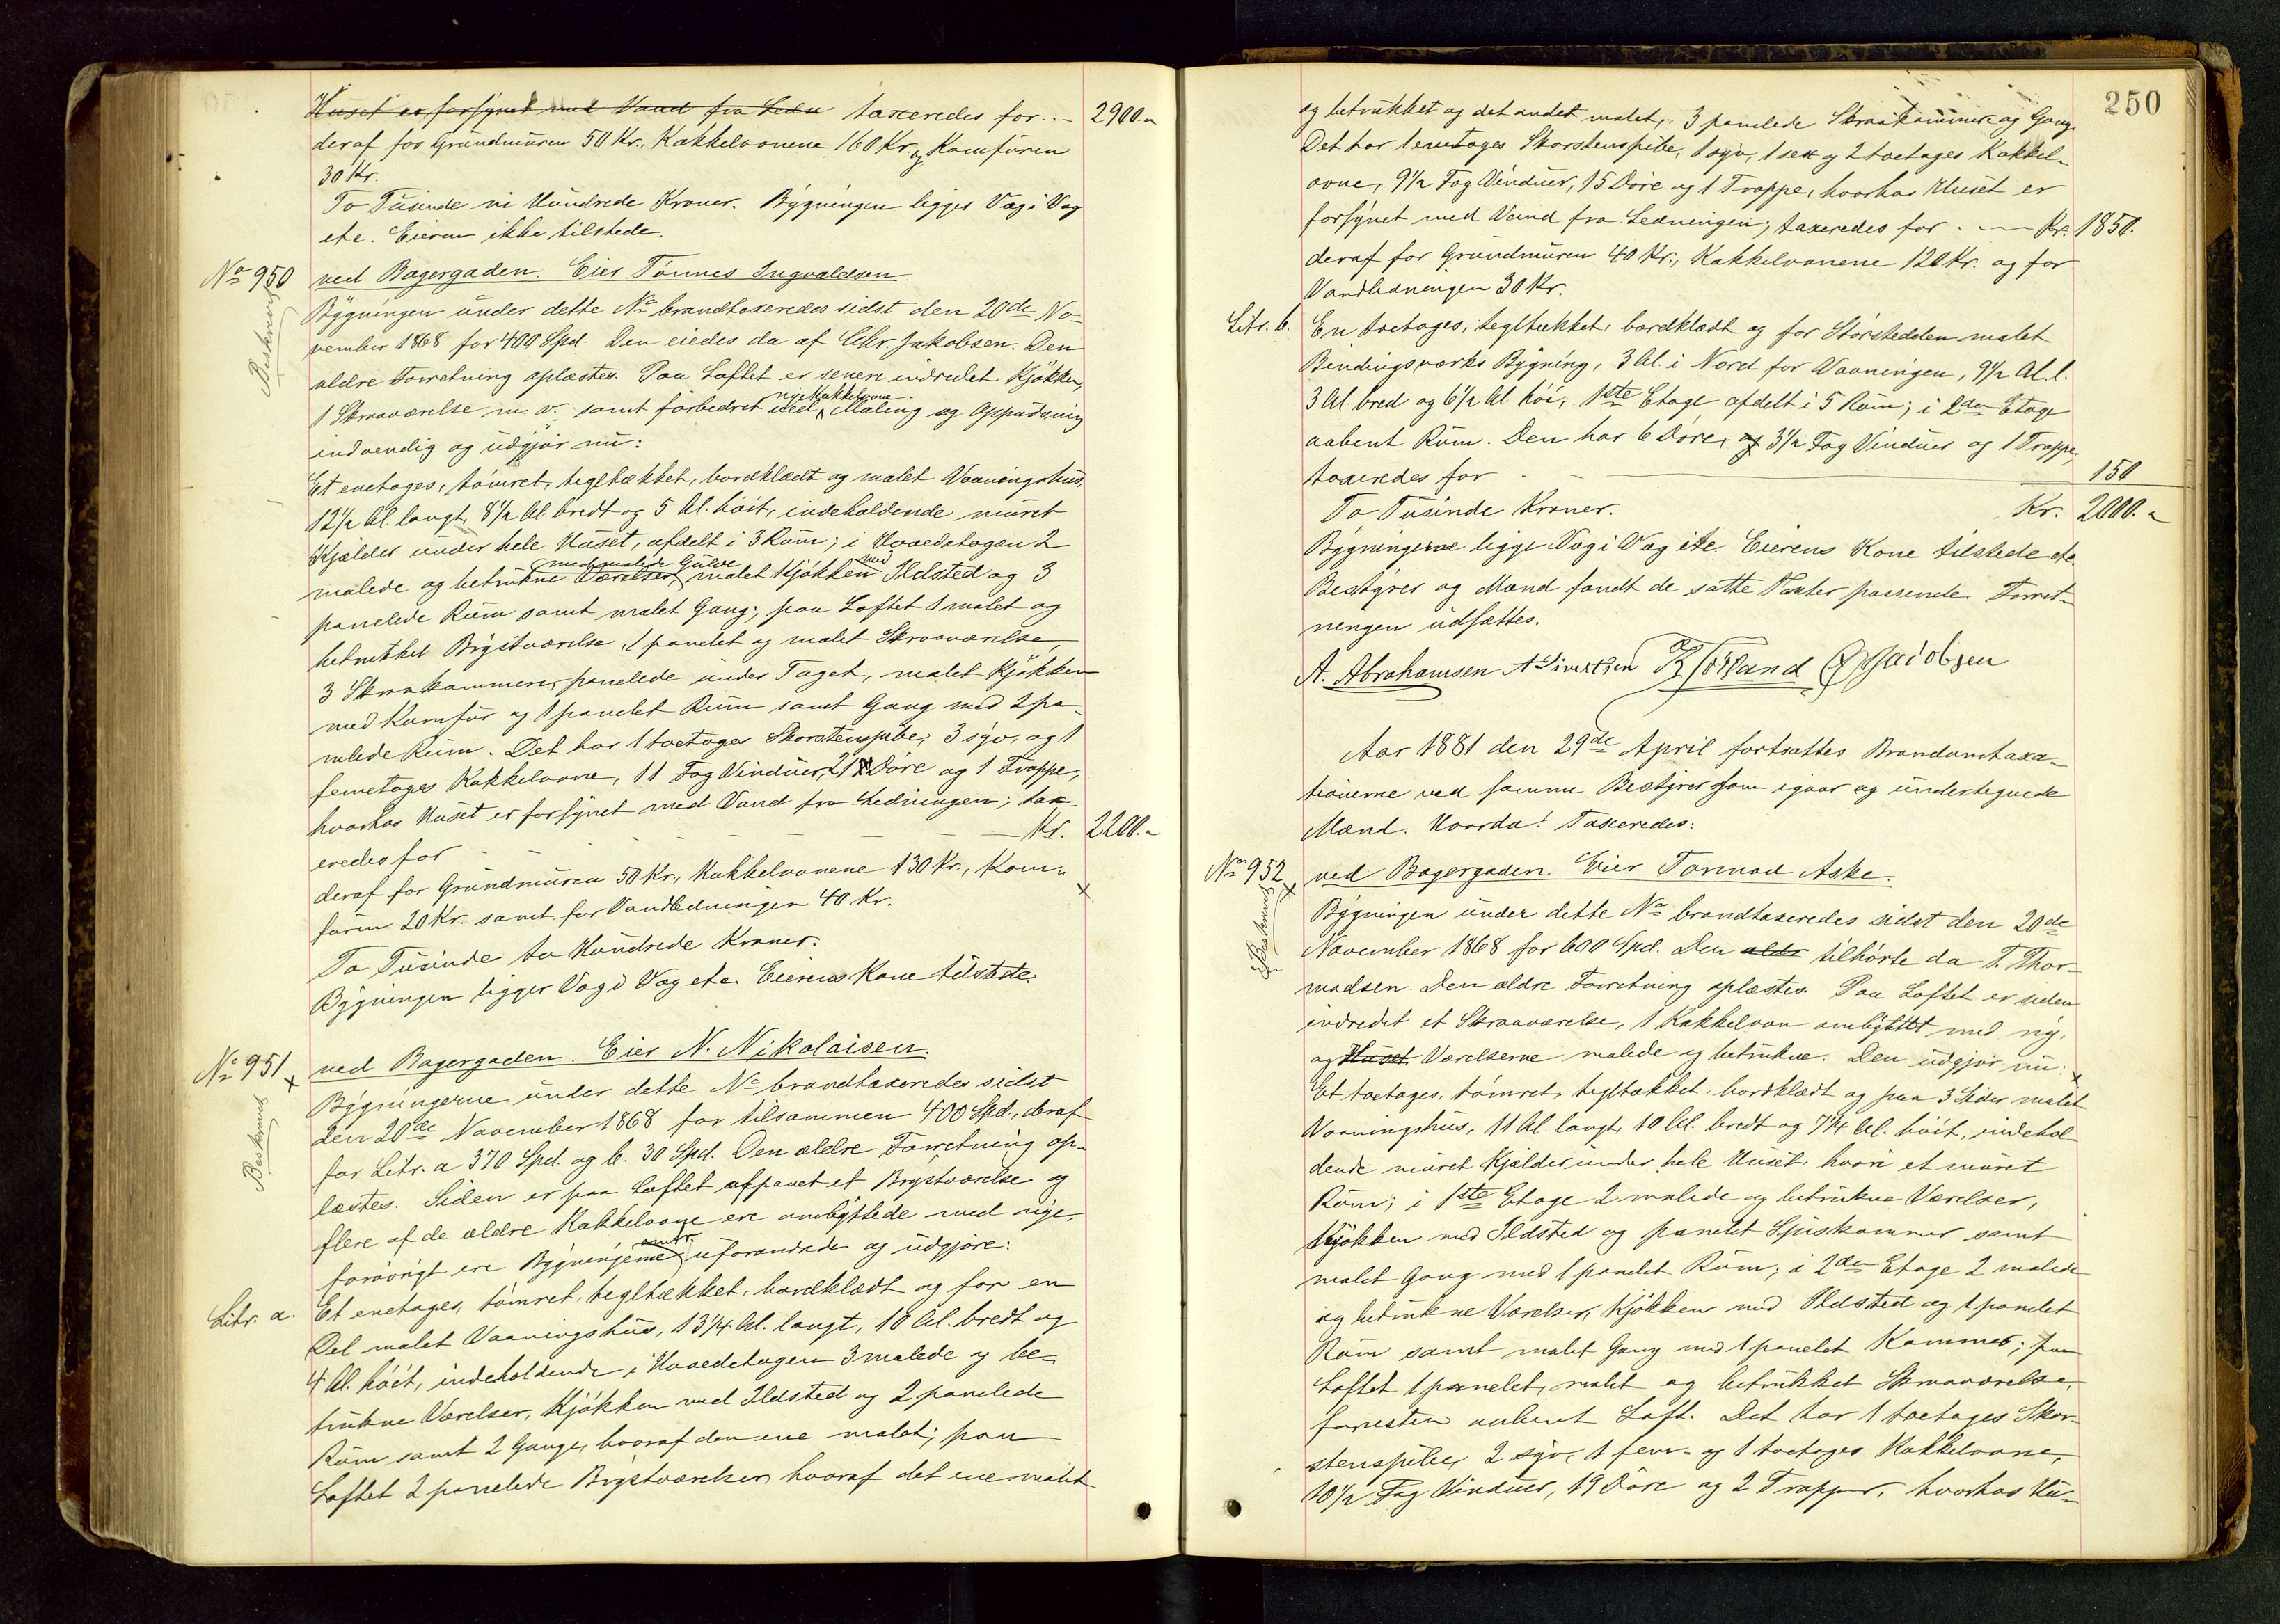 Huset er forsynet med Vand fra Ledn taxeredes for .. 2900.-
deraf for Grundmuren 50 Kr., Kakkelovnene 160 Kr. og Komfuren
30 Kr.
To Tusinde ni Hundrede Kroner. Bygningen ligger Væg i Væg
etc. Eieren ikke tilstede.
No 950 ved Bagergaden. Eier Tönnes Ingvaldsen.
Beskrevet
Bygningen under dette No brandtaxeredes sidst den 20de No-
vember 1868 for 400 Spd. Den eiedes da af Chr. Jakobsen. Den
ældre Forretning oplæstes. Paa Loftet er senere indredet Kjökken,
1 Skraaværelse m. v. samt forbedret med nye Kakkelovne, Maling og Oppudsning
indvendig og udgjör nu:
Et enetages, tömret, tegltækket, bordklædt og malet Vaaningshus,
12 1/2 Al. langt, 8 1/2 Al. bredt og 5 Al. höit, indeholdende muret
Kjælder under hele Huset, afdelt i 3 Rum; i Hovedetagen 2
malede og betrukne Værelser med malede Gulve, malet Kjökken med Ildsted og 3
panelede Rum samt malet Gang; paa Loftet 1 malet og
betrukket Brystværelse, 1 panelet og malet Skraaværelse,
3 Skraakammere, panelede under Taget, malet Kjökken
med Komfur og 1 panelet Rum samt Gang med 2 pa-
nelede Rum. Det har 1 toetages Skorstenspibe, 3 syv, og 1
femetages Kakkelovne, 11 Fag Vinduer, 21 Döre og 1 Trappe,
hvorhos Huset er forsynet med Vand fra Ledningen; tax-
eredes for Kr. 2200.-
deraf for Grundmuren 50 Kr., Kakkelovnene 130 Kr., Kom-
furen 20 Kr. samt for Vandledningen 40 Kr.
To Tusinde to Hundrede Kroner.
Bygningen ligger Væg i Væg etc. Eierens Kone tilstede.
No 951 ved Bagergaden. Eier N. Nikolaisen.
Beskrevet
Bygningerne under dette No brandtaxeredes sidst
den 20de November 1868 for tilsammen 400 Spd., deraf
for Litr. a 370 Spd. og b. 30 Spd. Den ældre Forretning op-
læstes. Siden er paa Loftet afpanet et Brystværelse og
flere af de ældre Kakkelovne ere ombyttede med nye,
forövrigt ere Bygningerne omtr. uforandrede og udgjöre:
Litr. a. Et enetages, tömret, tegltækket, bordklædt og for en
Del malet Vaaningshus, 13 1/4 Al. langt, 10 Al. bredt og
4 Al. höit, indeholdende i Hovedetagen 3 malede og be-
trukne Værelser, Kjökken med Ildsted og 2 panelede
Rum samt 2 Gange, hvoraf den ene malet; paa
Loftet 2 panelede Brystværelser, hvoraf det ene malet
250
og betrukket og det andet malet, 3 panelede Skraakammere og Gang.
Det har 1 enetages Skorstenspibe, 1 syv, 1 sex og 2 toetages Kakkel-
ovne, 9 1/2 Fag Vinduer, 15 Döre og 1 Trappe, hvorhos Huset er
forsynet med Vand fra Ledningen; taxeredes for . Kr. 1850.
deraf for Grundmuren 40 Kr., Kakkelovnene 120 Kr. og for
Vandledningen 30 Kr.
Litr. b. En toetages, tegltækket, bordklædt og for Störstedelen malet
Bindingsværks Bygning, 3 Al. i Nord for Vaaningen, 9 1/2 Al. l.
3 Al. bred og 6 1/2 Al. höi, 1ste Etage afdelt i 5 Rum; i 2den Etage
aabent Rum. Den har 6 Döre, og 3 1/2 Fag Vinduer og 1 Trappe,
taxeredes for 150
To Tusinde Kroner. Kr. 2000.-
Bygningerne ligge Væg i Væg etc. Eierens Kone tilstede etc.
Bestyrer og Mænd fandt de satte Taxter passende. Forret-
ningen udsættes.
A. Abrahamsen A Sivertsen Jacobsen
Aar 1881 den 29de April fortsattes Brandomtaxa-
tionerne ved samme Bestyrer som igaar og undertegnede
Mænd. Hvorda! Taxeredes:
No 952 ved Bagergaden. Eier Tormod Aske.
Beskrevet
Bygningen under dette No brandtaxeredes sidst den 20de
November 1868 for 600 Spd. Den ældr tilhörte da T. Thor-
madsen. Den ældre Forretning oplæstes. Paa Loftet er siden
indredet et Skraaværelse, 1 Kakkelovn ombyttet med ny,
og Huset Værelserne malede og betrukne. Den udgjör nu:
Et toetages, tömret, tegltækket, bordklædt og paa 3 Sider malet
Vaaningshus, 11 Al. langt, 10 Al. bredt og 7 1/4 Al. höit, indehol-
dende muret Kjælder under hele Huset, hvori et muret
Rum; i 1ste Etage 2 malede og betrukne Værelser,
Kjökken med Ildsted og panelet Spiskammer samt
malet Gang med 1 panelet Rum; i 2den Etage 2 malede
og betrukne Værelser, Kjökken med Ildsted og 1 panelet
Rum samt malet Gang med 1 panelet Kammer; paa
Loftet 1 panelet, malet og betrukket Skraaværelse,
forresten aabent Loft. Det har 1 toetages Skor-
stenspibe, 2 syv, 1 fem- og 1 toetages Kakkelovne,
10 1/2 Fag Vinduer, 19 Döre og 2 Trapper, hvorhos Hu-